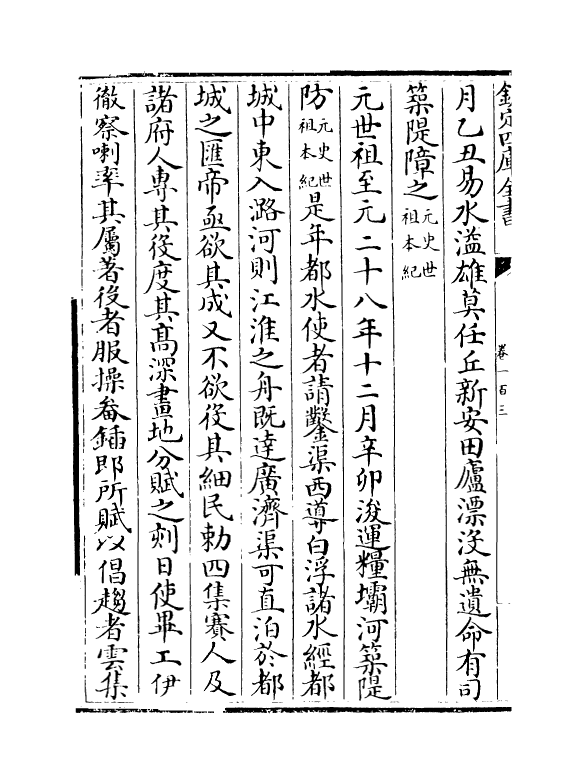 欽定四庫全書
卷一百三
月乙丑易水溢雄莫任丘新安田廬漂没無遺命有司
築隄障之元史世祖本紀
元世祖至元二十八年十二月辛卯浚運糧壩河築隄
防元史世祖本紀是年都水使者請鑿渠西導白浮諸水經都
城中東入潞河則江淮之舟既達廣濟渠可直泊於都
城之匯帝亟欲其成又不欲役其細民勅四集賽人及
諸府人專其役度其高深畫地分賦之刻日使畢工伊
徹察喇率其屬著役者服操畚鍤即所賦以倡趨者雲集